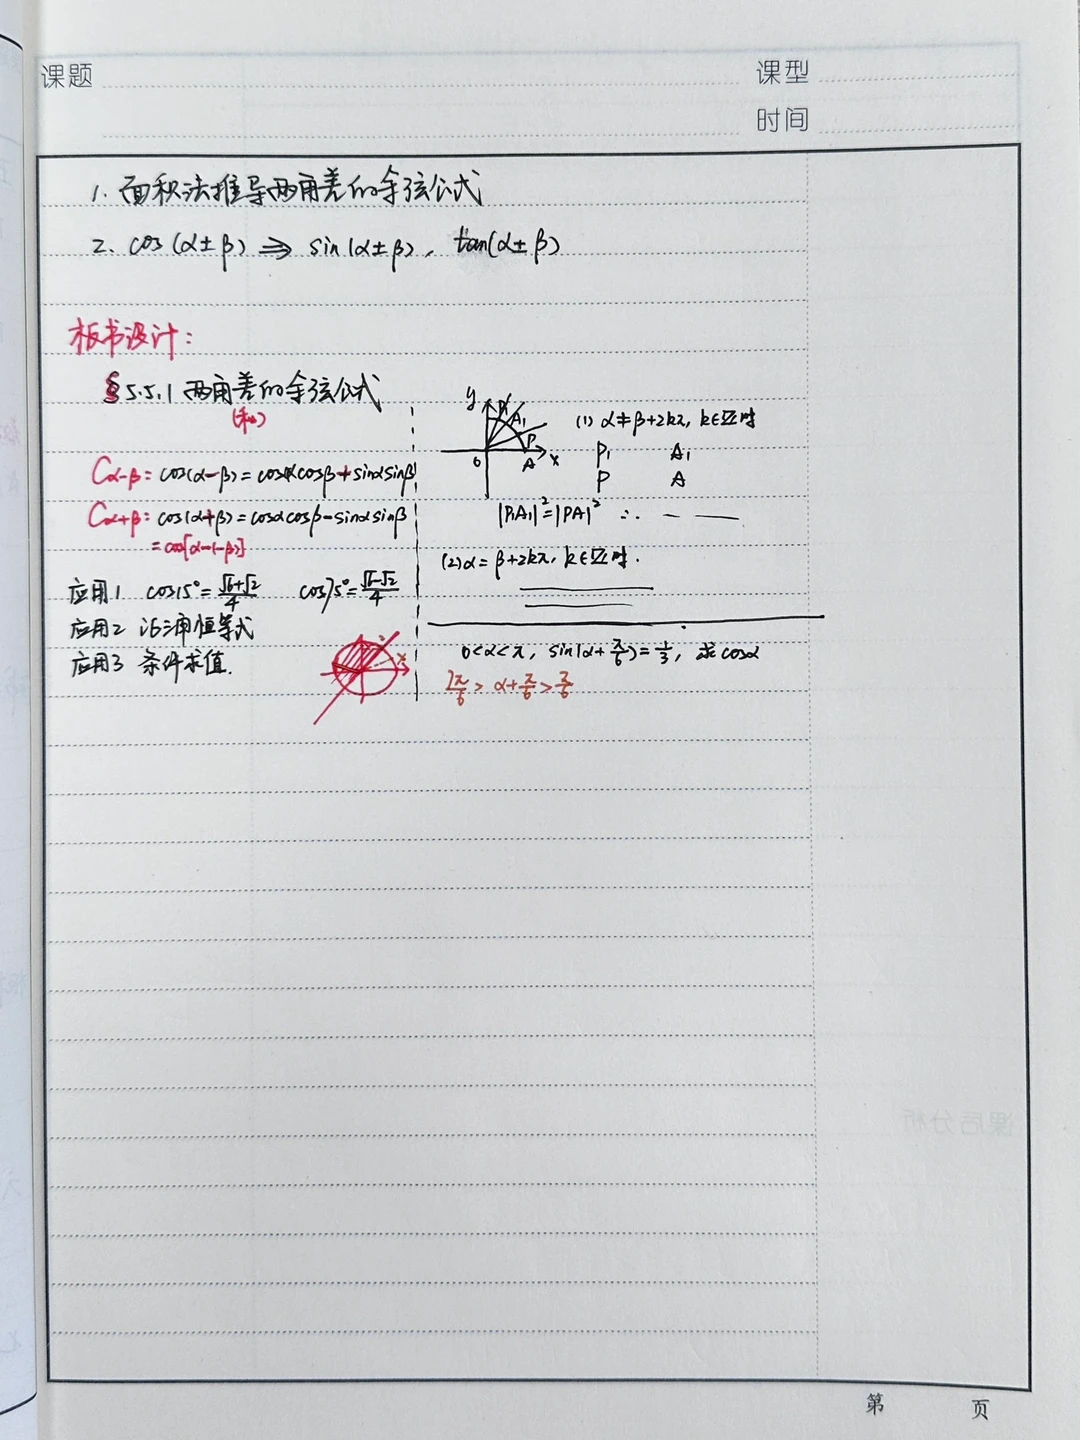 课题
课型
时间
1. 面积法推导两角差的余弦公式
2. cos(α±β) ⇒ sin(α±β), tan(α±β)
板书设计:
§5.5.1 两角差的余弦公式
(和)
Cα-β: cos(α-β)=cosαcosβ+sinαsinβ
Cα+β: cos(α+β)=cosαcosβ-sinαsinβ
=cos[α-(-β)]
应用1 cos15°=(√6+√2)/4 cos75°=(√6-√2)/4
应用2 证三角恒等式
应用3 条件求值.
y P1 A1 P
0 A x
(1) α≠β+2kπ, k∈Z时
P1 A1
P A
|P1A1|²=|PA|² ∴ — ——
(2) α=β+2kπ, k∈Z时.
0<α<π, sin(α+π/6)=1/3, 求cosα
7π/6 > α+π/6 > π/6
课后分析
第 页